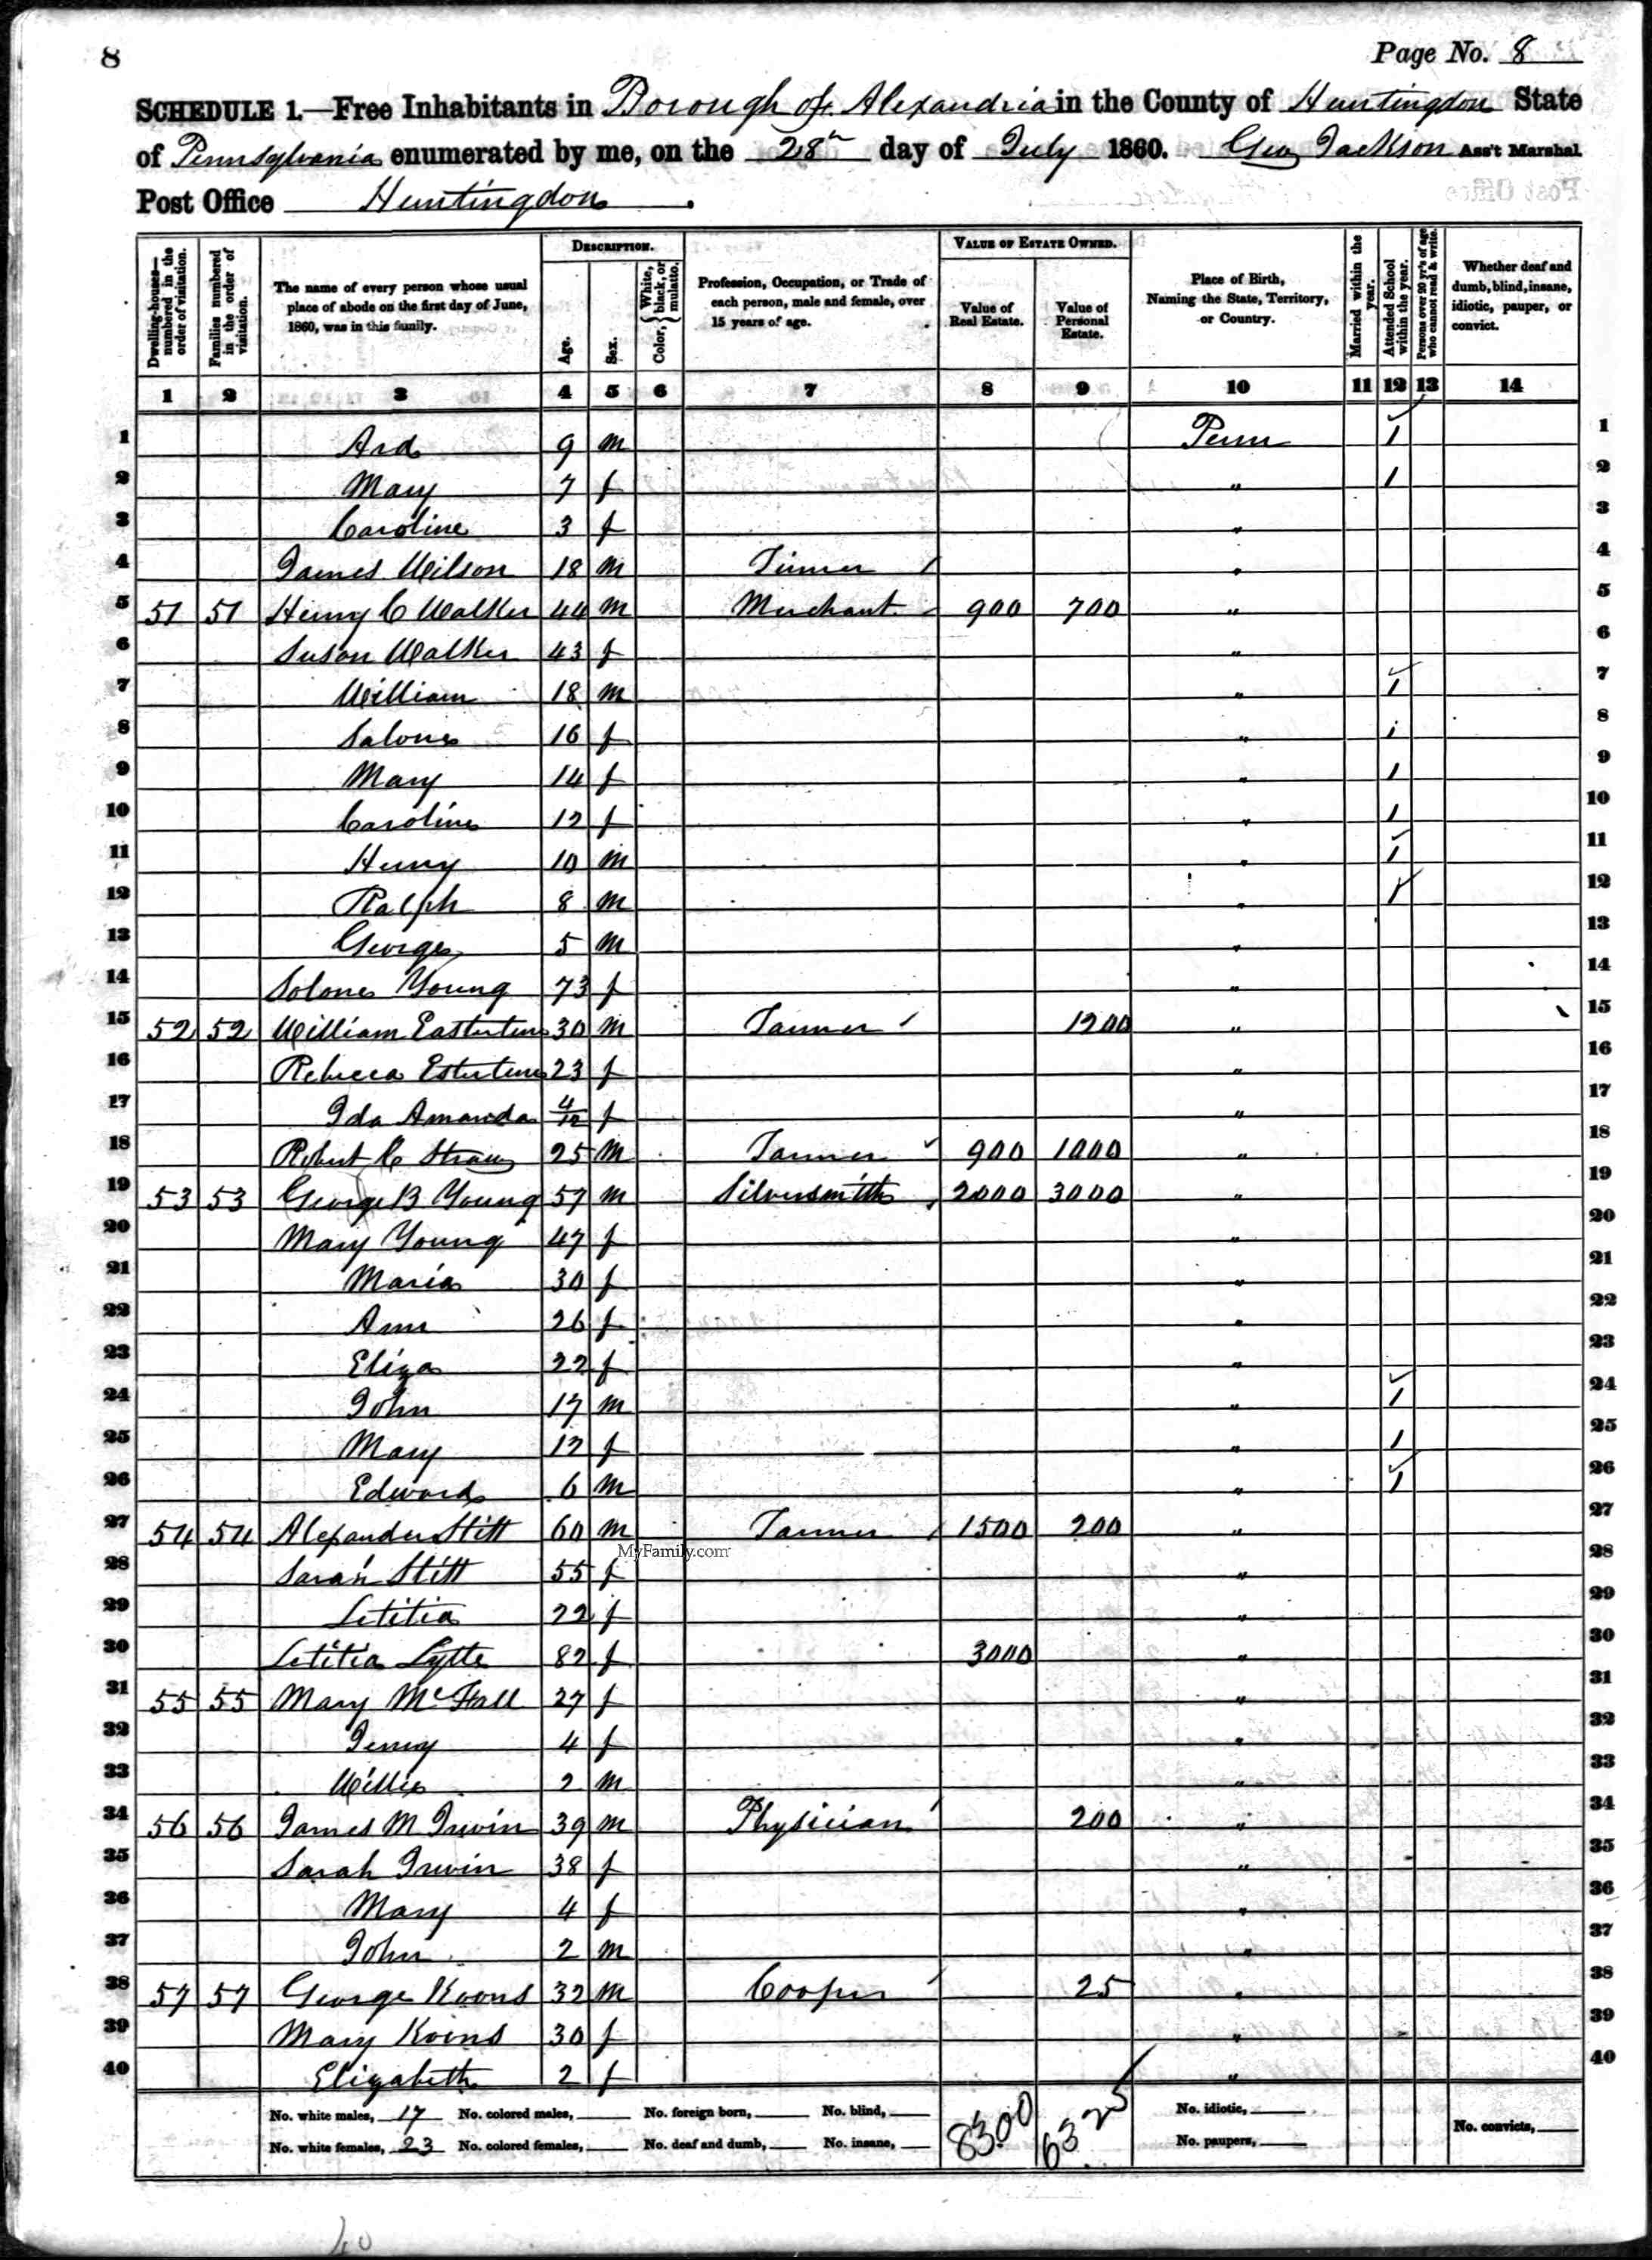 8
Page No. 8
SCHEDULE 1.—Free Inhabitants in Borough of Alexandria in the County of Huntingdon State
of Pennsylvania enumerated by me, on the 28th day of July 1860. Geo Jackson Ass't Marshal
Post Office Huntingdon.
Dwelling-houses—numbered in the order of visitation.
Families numbered in the order of visitation.
The name of every person whose usual place of abode on the first day of June, 1860, was in this family.
DESCRIPTION.
Age.
Sex.
Color, {White, black, or mulatto.
Profession, Occupation, or Trade of each person, male and female, over 15 years of age.
VALUE OF ESTATE OWNED.
Value of Real Estate.
Value of Personal Estate.
Place of Birth, Naming the State, Territory, or Country.
Married within the year.
Attended School within the year.
Persons over 20 yr's of age who cannot read & write.
Whether deaf and dumb, blind, insane, idiotic, pauper, or convict.
1 2 3 4 5 6 7 8 9 10 11 12 13 14
1 Ard 9 m Penn 1 1
2 Mary 7 f " 1 2
3 Caroline 3 f " 3
4 James Wilson 18 m Tinner " 4
5 51 51 Henry C Walker 44 m Merchant 900 700 " 5
6 Suson Walker 43 f " 6
7 William 18 m " 1 7
8 Salome 16 f " 1 8
9 Mary 14 f " 1 9
10 Caroline 12 f " 1 10
11 Henry 10 m " 1 11
12 Ralph 8 m " 1 12
13 George 5 m " 13
14 Solome Young 73 f " 14
15 52 52 William 30 m Tanner 1200 " 15
16 Rebecca 23 f " 16
17 Ida Amanda 4/12 f " 17
18 Robert C 25 m Tanner 900 1000 " 18
19 53 53 George B Young 57 m Silversmith 2000 3000 " 19
20 Mary Young 47 f " 20
21 Maria 30 f " 21
22 Ann 26 f " 22
23 Eliza 22 f " 23
24 John 17 m " 1 24
25 Mary 12 f " 1 25
26 Edward 6 m " 1 26
27 54 54 Alexander Stitt 60 m Tanner 1500 200 " 27
MyFamily.com
28 Sarah Stitt 55 f " 28
29 Letitia 22 f " 29
30 Letitia Lytle 82 f 3000 " 30
31 55 55 Mary McFall 27 f " 31
32 Jenny 4 f " 32
33 Willie 2 m " 33
34 56 56 James M Irwin 39 m Physician 200 " 34
35 Sarah Irwin 38 f " 35
36 Mary 4 f " 36
37 John 2 m " 37
38 57 57 George Koons 32 m Cooper 25 " 38
39 Mary Koons 30 f " 39
40 Elizabeth 2 f " 40
No. white males, 17 No. colored males, No. foreign born, No. blind, 8300 6325 No. idiotic,
No. white females, 23 No. colored females, No. deaf and dumb, No. insane, No. paupers, No. convicts,